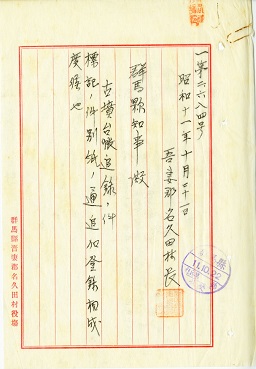 一第二六八四号
昭和十一年十月二十一日
吾妻郡名久田村長
群馬縣知事殿
古墳台帳追録ノ件
標記ノ件別紙ノ通追加登録相成
度候也
群馬縣吾妻郡名久田村役場
11.10.22